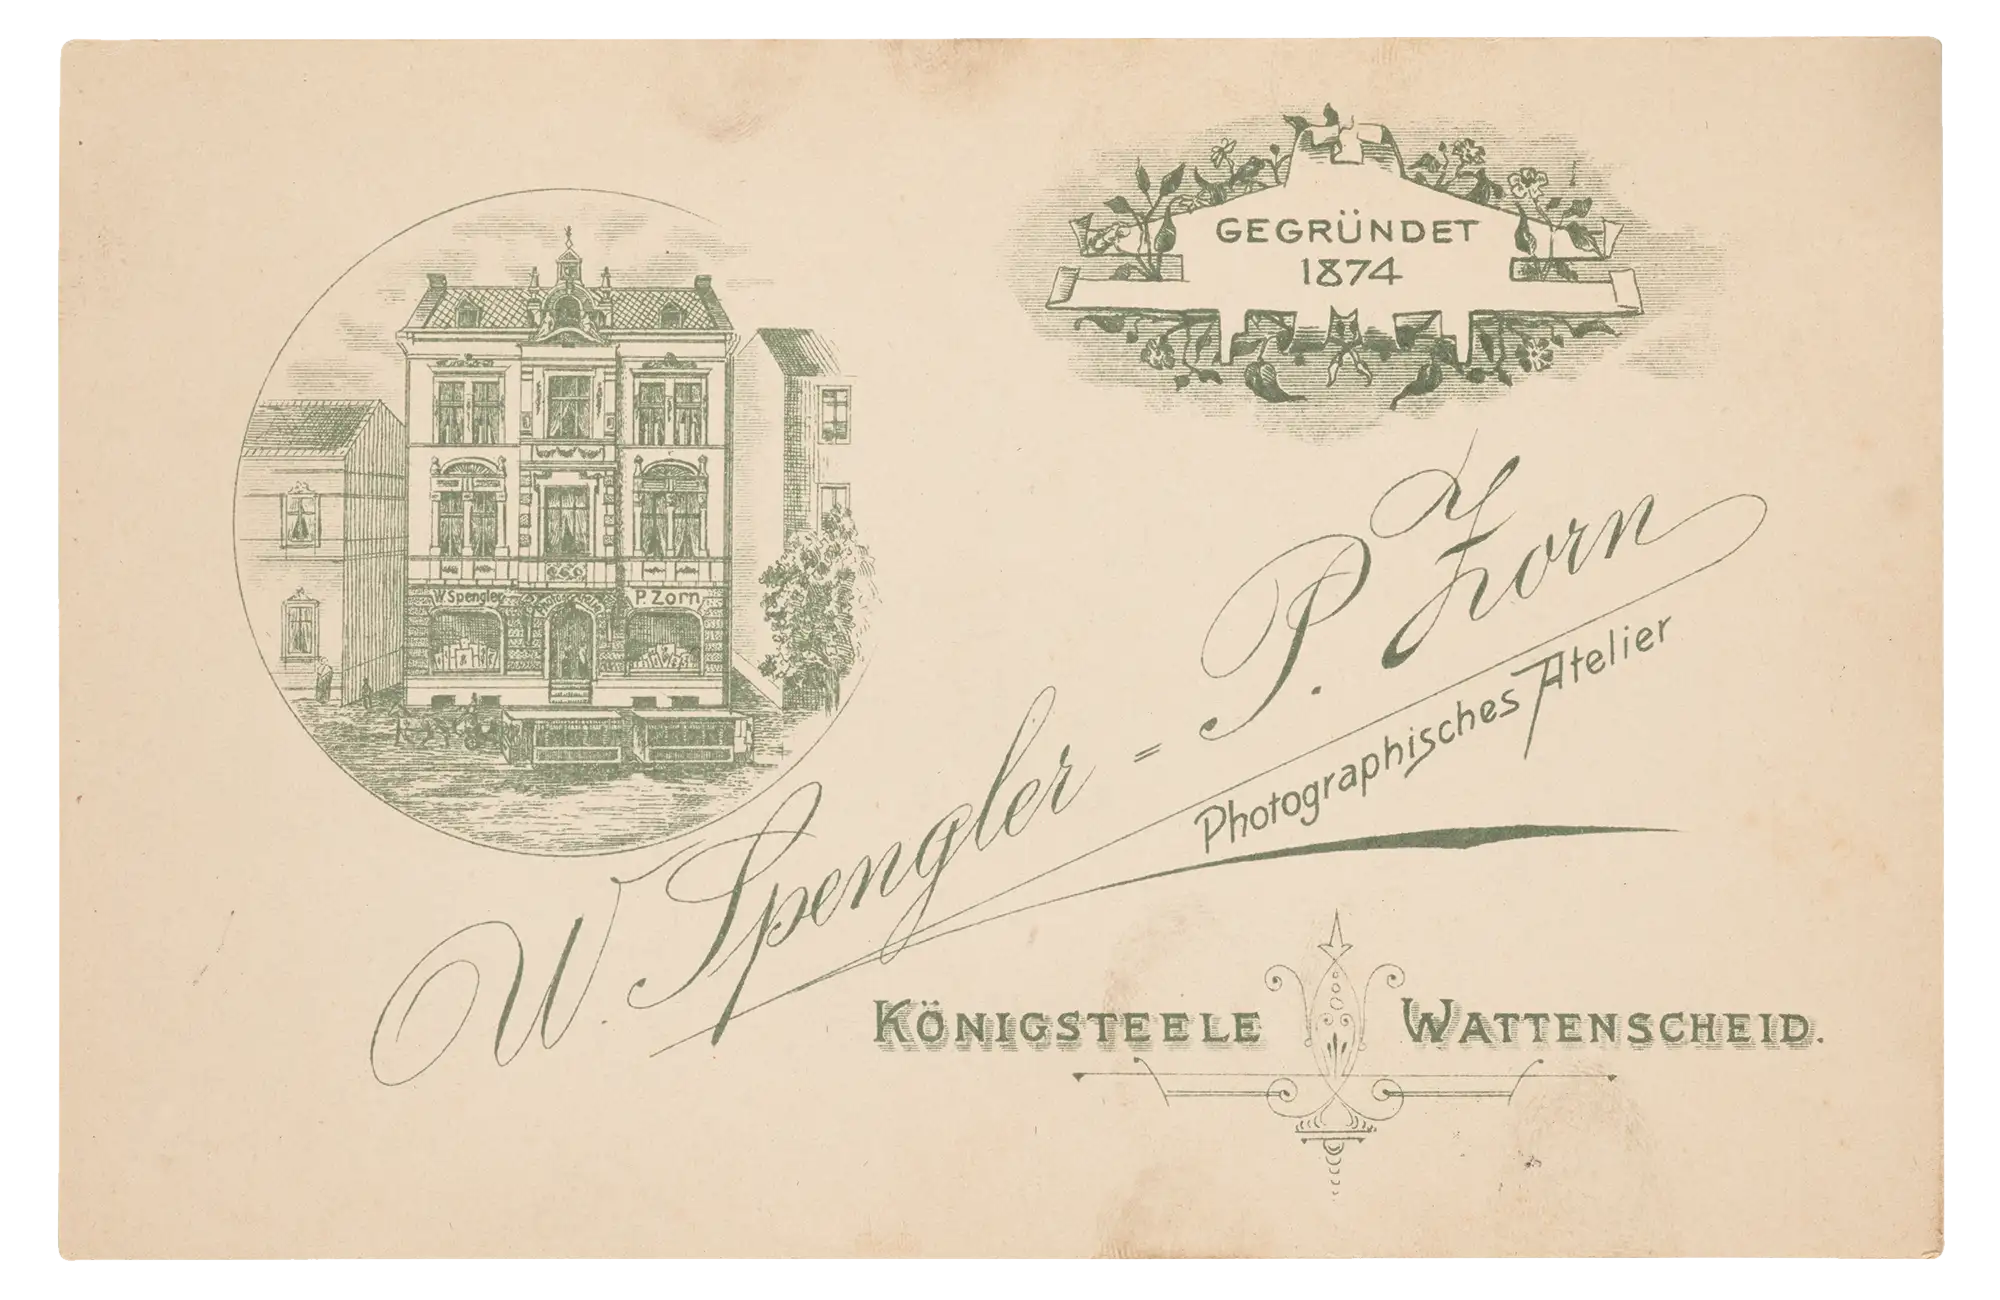 GEGRÜNDET
1874
W. Spengler P. Zorn
W. Spengler = P. Zorn
Photographisches Atelier
KÖNIGSTEELE WATTENSCHEID.